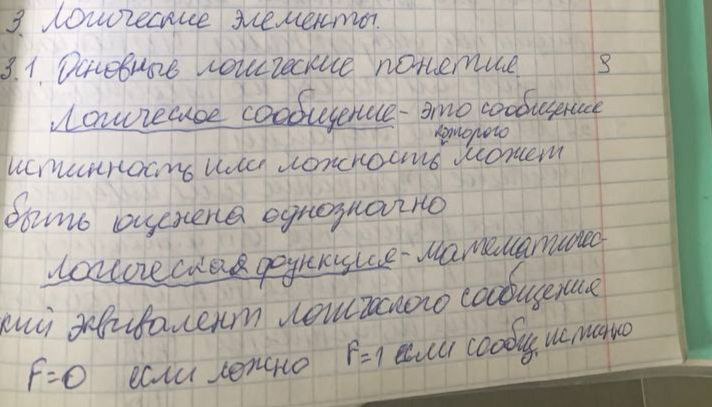 3. Логические элементы.
3.1. Основные логические понятие
Логическое сообщение - это сообщение
которого
истинность или ложность может
быть оценена однозначно
Логическая функция - математичес-
кий эквивалент логического сообщения
F=0 если ложно F=1 если сообщ. истинно